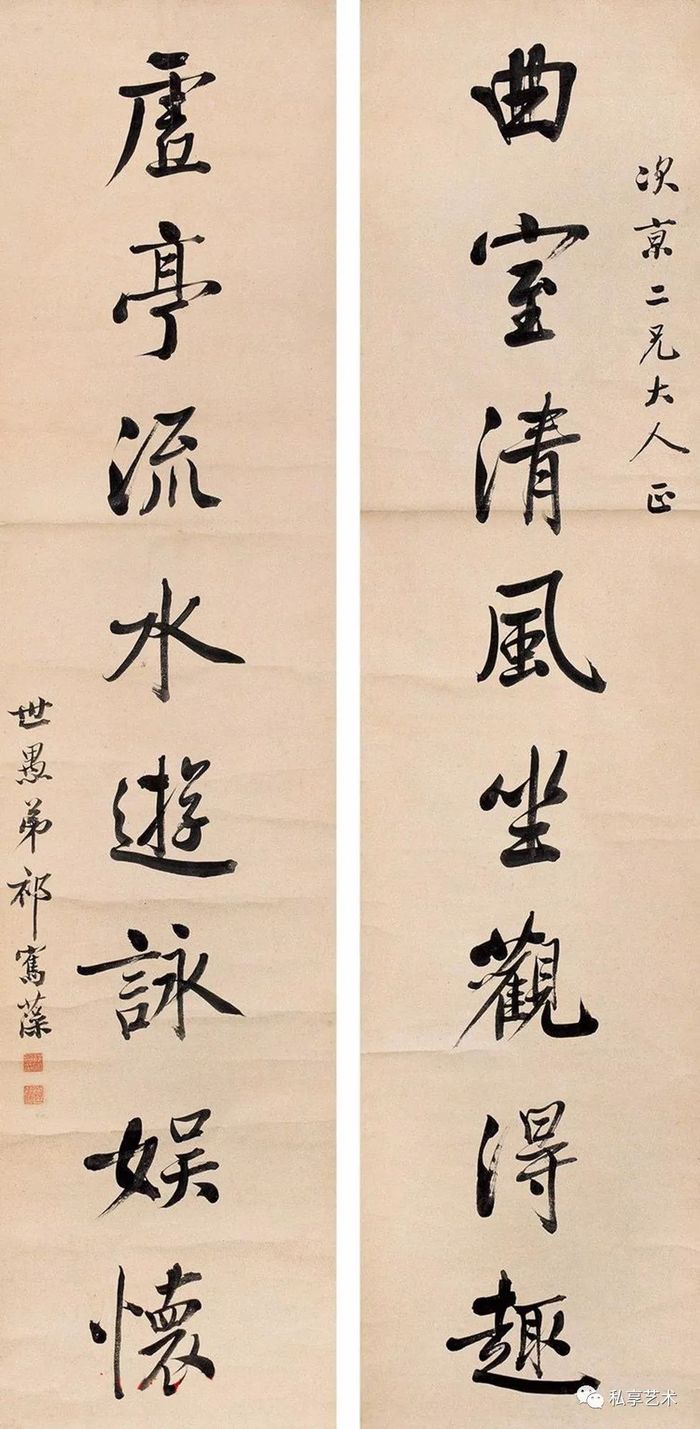 次京二兄大人正
曲室清風坐觀得趣
虛亭流水遊詠娱懷
世愚弟祁寯藻
私享艺术